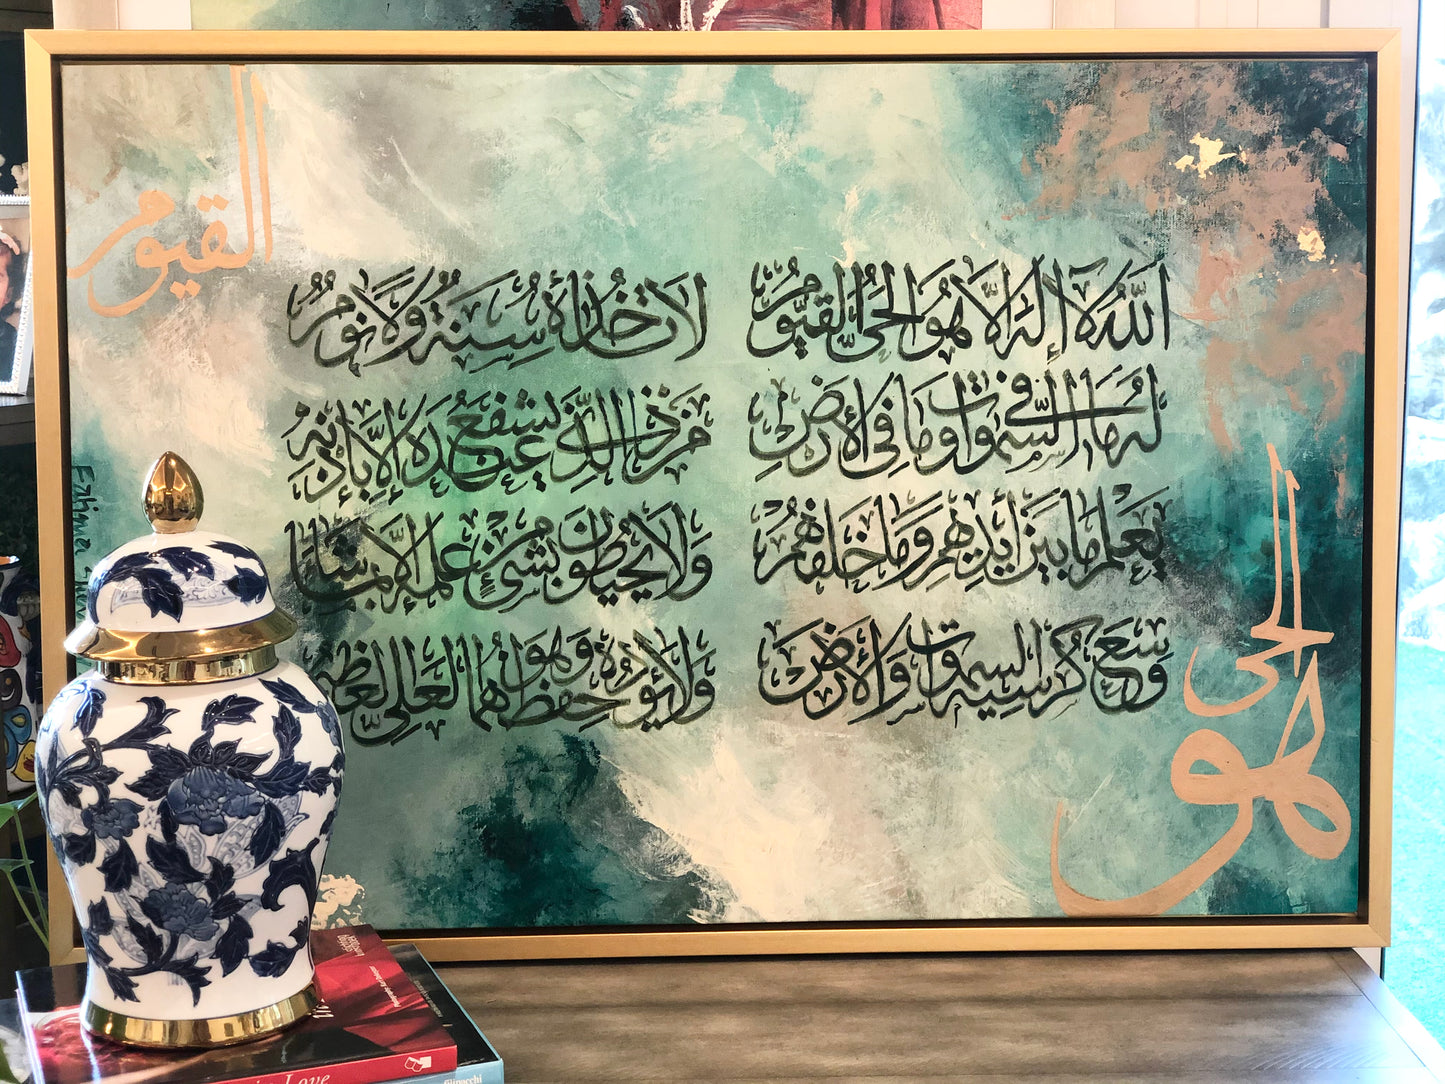 القيوم
اَللّٰهُ لَا إِلٰهَ إِلَّا هُوَ الْحَيُّ الْقَيُّوْمُ
لَا تَاْخُذُهٗ سِنَةٌ وَلَا نَوْمٌ
لَهٗ مَا فِي السَّمٰوَاتِ وَمَا فِي الْأَرْضِ
مَنْ ذَا الَّذِي يَشْفَعُ عِنْدَهٗ إِلَّا بِإِذْنِهٖ
يَعْلَمُ مَا بَيْنَ أَيْدِيْهِمْ وَمَا خَلْفَهُمْ
وَلَا يُحِيْطُوْنَ بِشَيْءٍ مِنْ عِلْمِهٖ إِلَّا بِمَا شَاءَ
وَسِعَ كُرْسِيُّهُ السَّمٰوٰتِ وَالْأَرْضَ
وَلَا يَؤُدُهٗ حِفْظُهُمَا وَهُوَ الْعَلِيُّ الْعَظِيْمُ
الحي
هو
Love